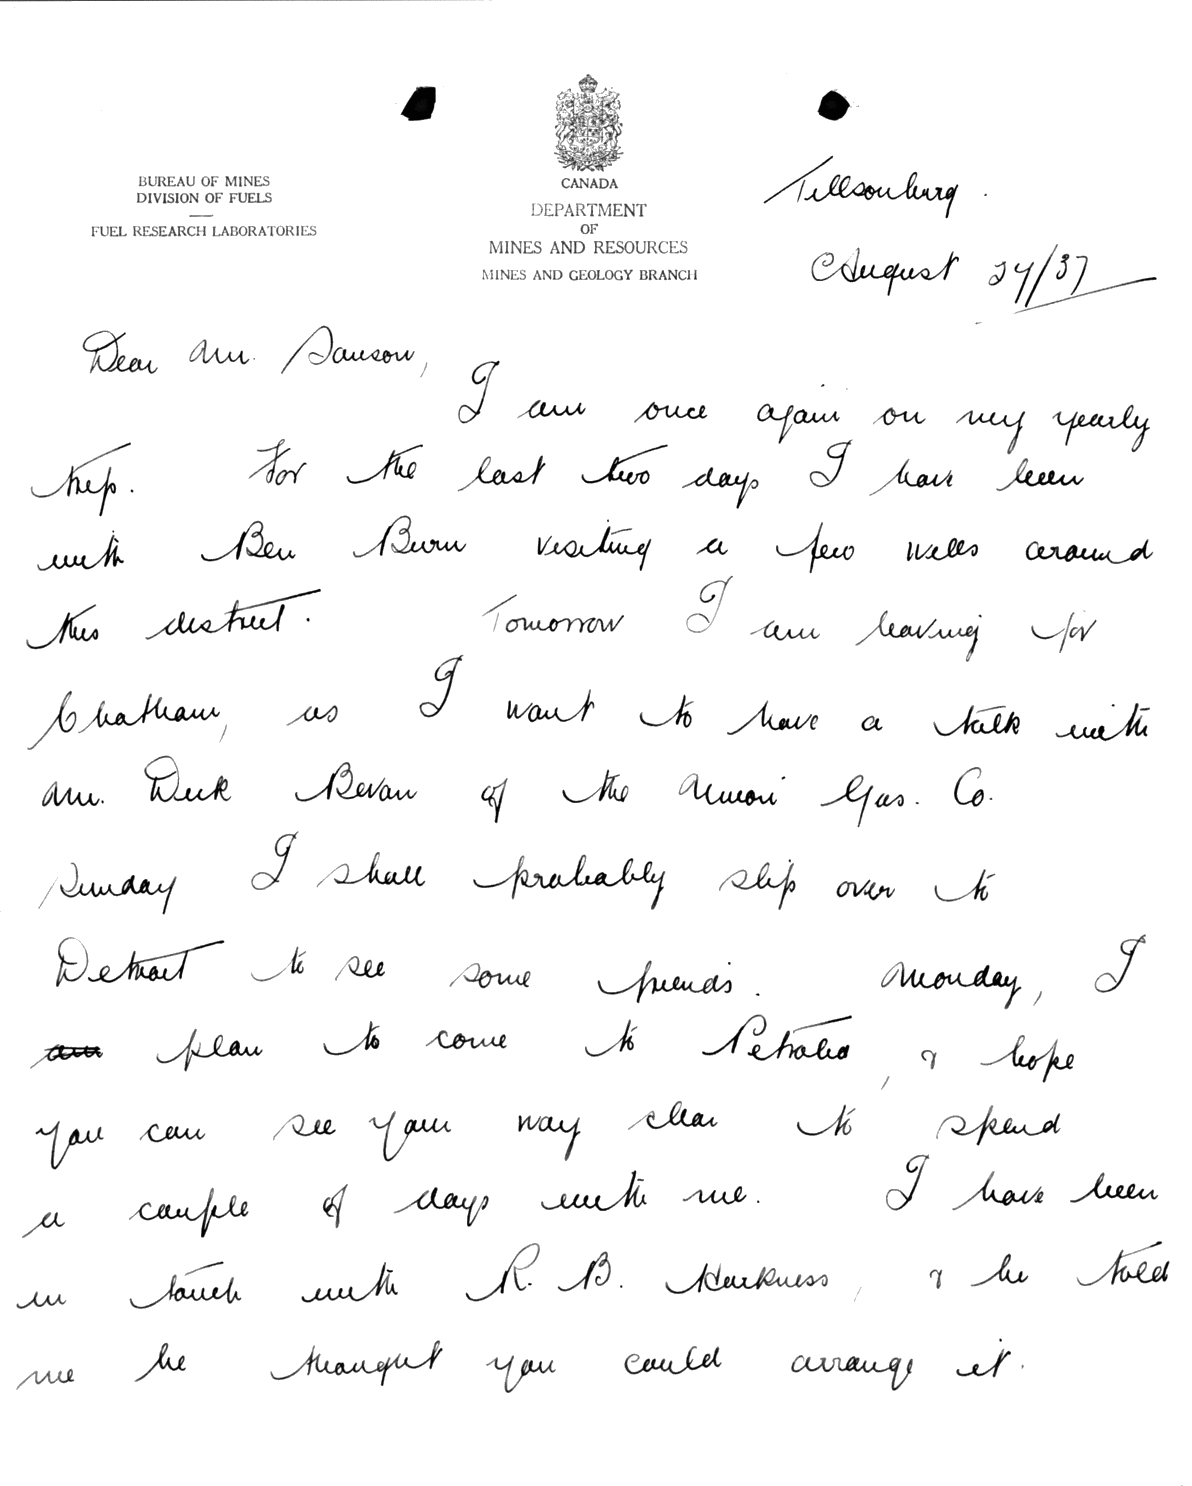 BUREAU OF MINES
DIVISION OF FUELS
FUEL RESEARCH LABORATORIES
CANADA
DEPARTMENT
OF
MINES AND RESOURCES
MINES AND GEOLOGY BRANCH
Tillsonburg.
August 27/37
Dear Mr. Sanson,
I am once again on my yearly
trip. For the last two days I have been
with Ben Burn visiting a few wells around
this district. Tomorrow I am leaving for
Chatham, as I want to have a talk with
Mr. Dick Bevan of the Union Gas. Co.
Sunday I shall probably slip over to
Detroit to see some friends. Monday, I
am plan to come to Petrolia, & hope
you can see your way clear to spend
a couple of days with me. I have been
in touch with R. B. Harkness, & he told
me he thought you could arrange it.